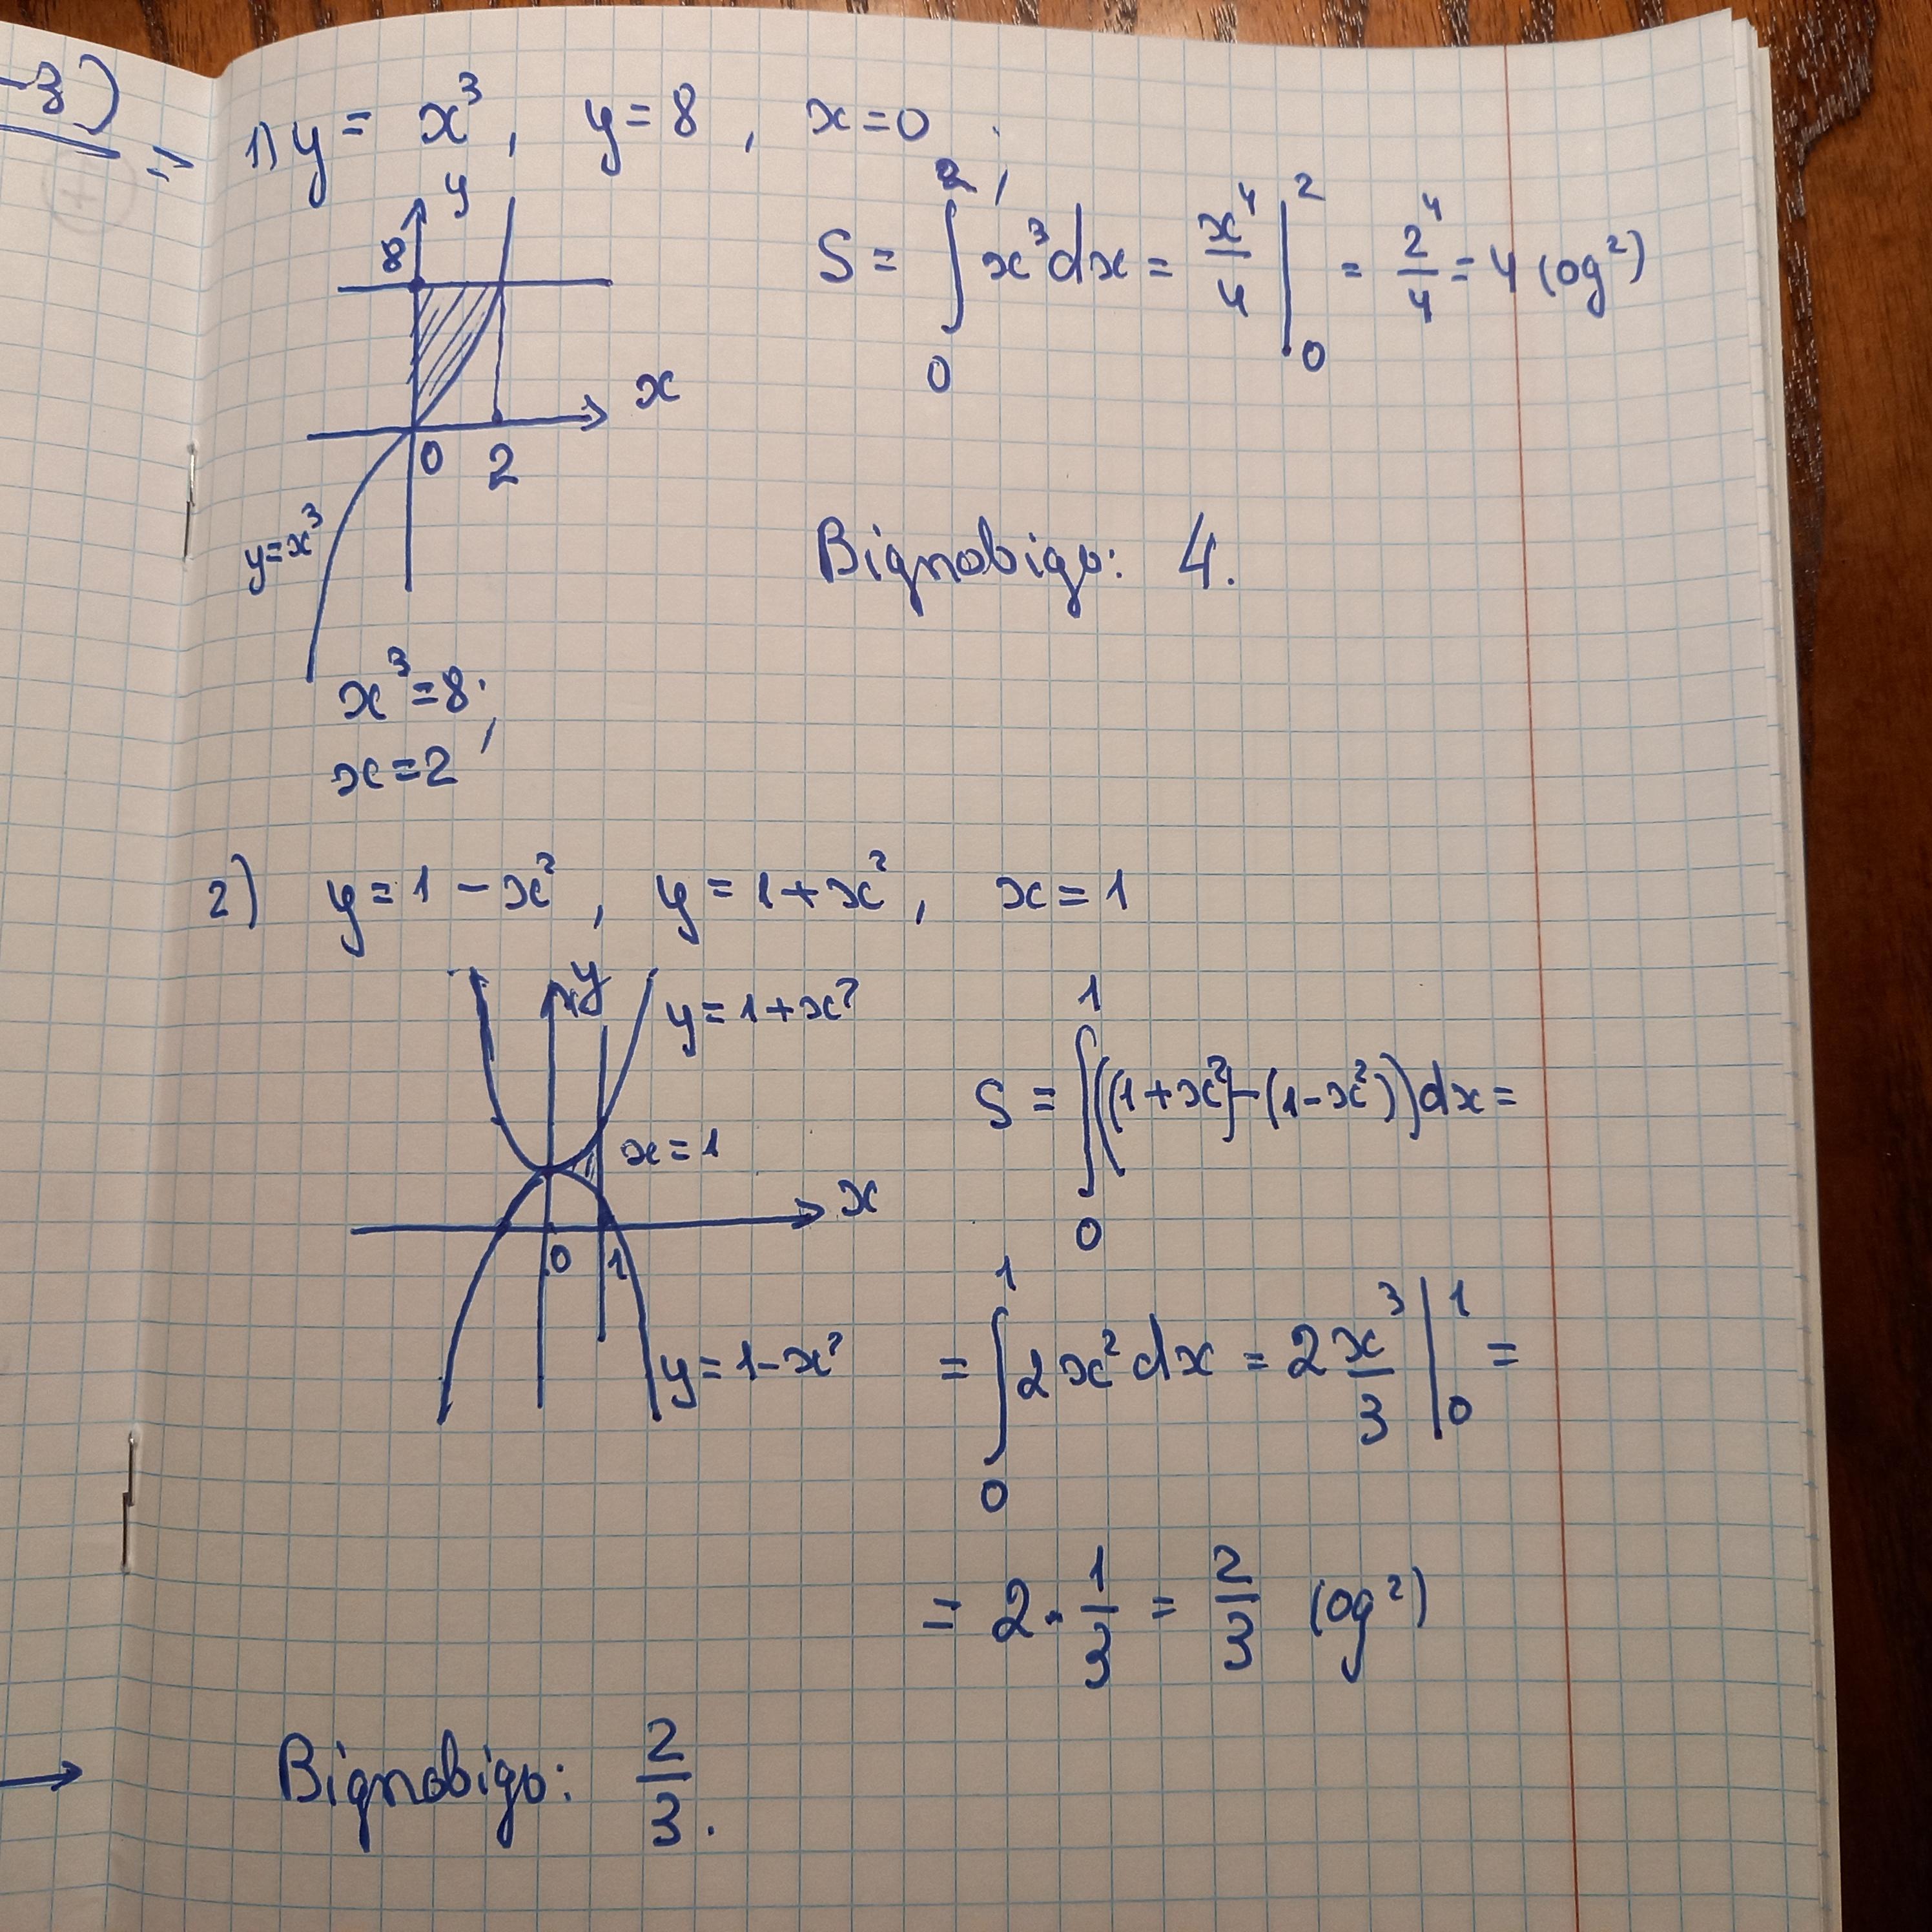 -3)
=
1) y = x³, y = 8, x = 0;
y
8
x
0 2
y = x³
S = ∫₀² x³dx = x⁴/4 |₀² = 2⁴/4 = 4 (од²)
Відповідь: 4.
x³ = 8;
x = 2
2) y = 1 - x², y = 1 + x², x = 1
y
y = 1 + x²
x = 1
x
0 1
y = 1 - x²
S = ∫₀¹ ((1 + x²) - (1 - x²))dx =
= ∫₀¹ 2x² dx = 2 x³/3 |₀¹ =
= 2 · 1/3 = 2/3 (од²)
Відповідь: 2/3.